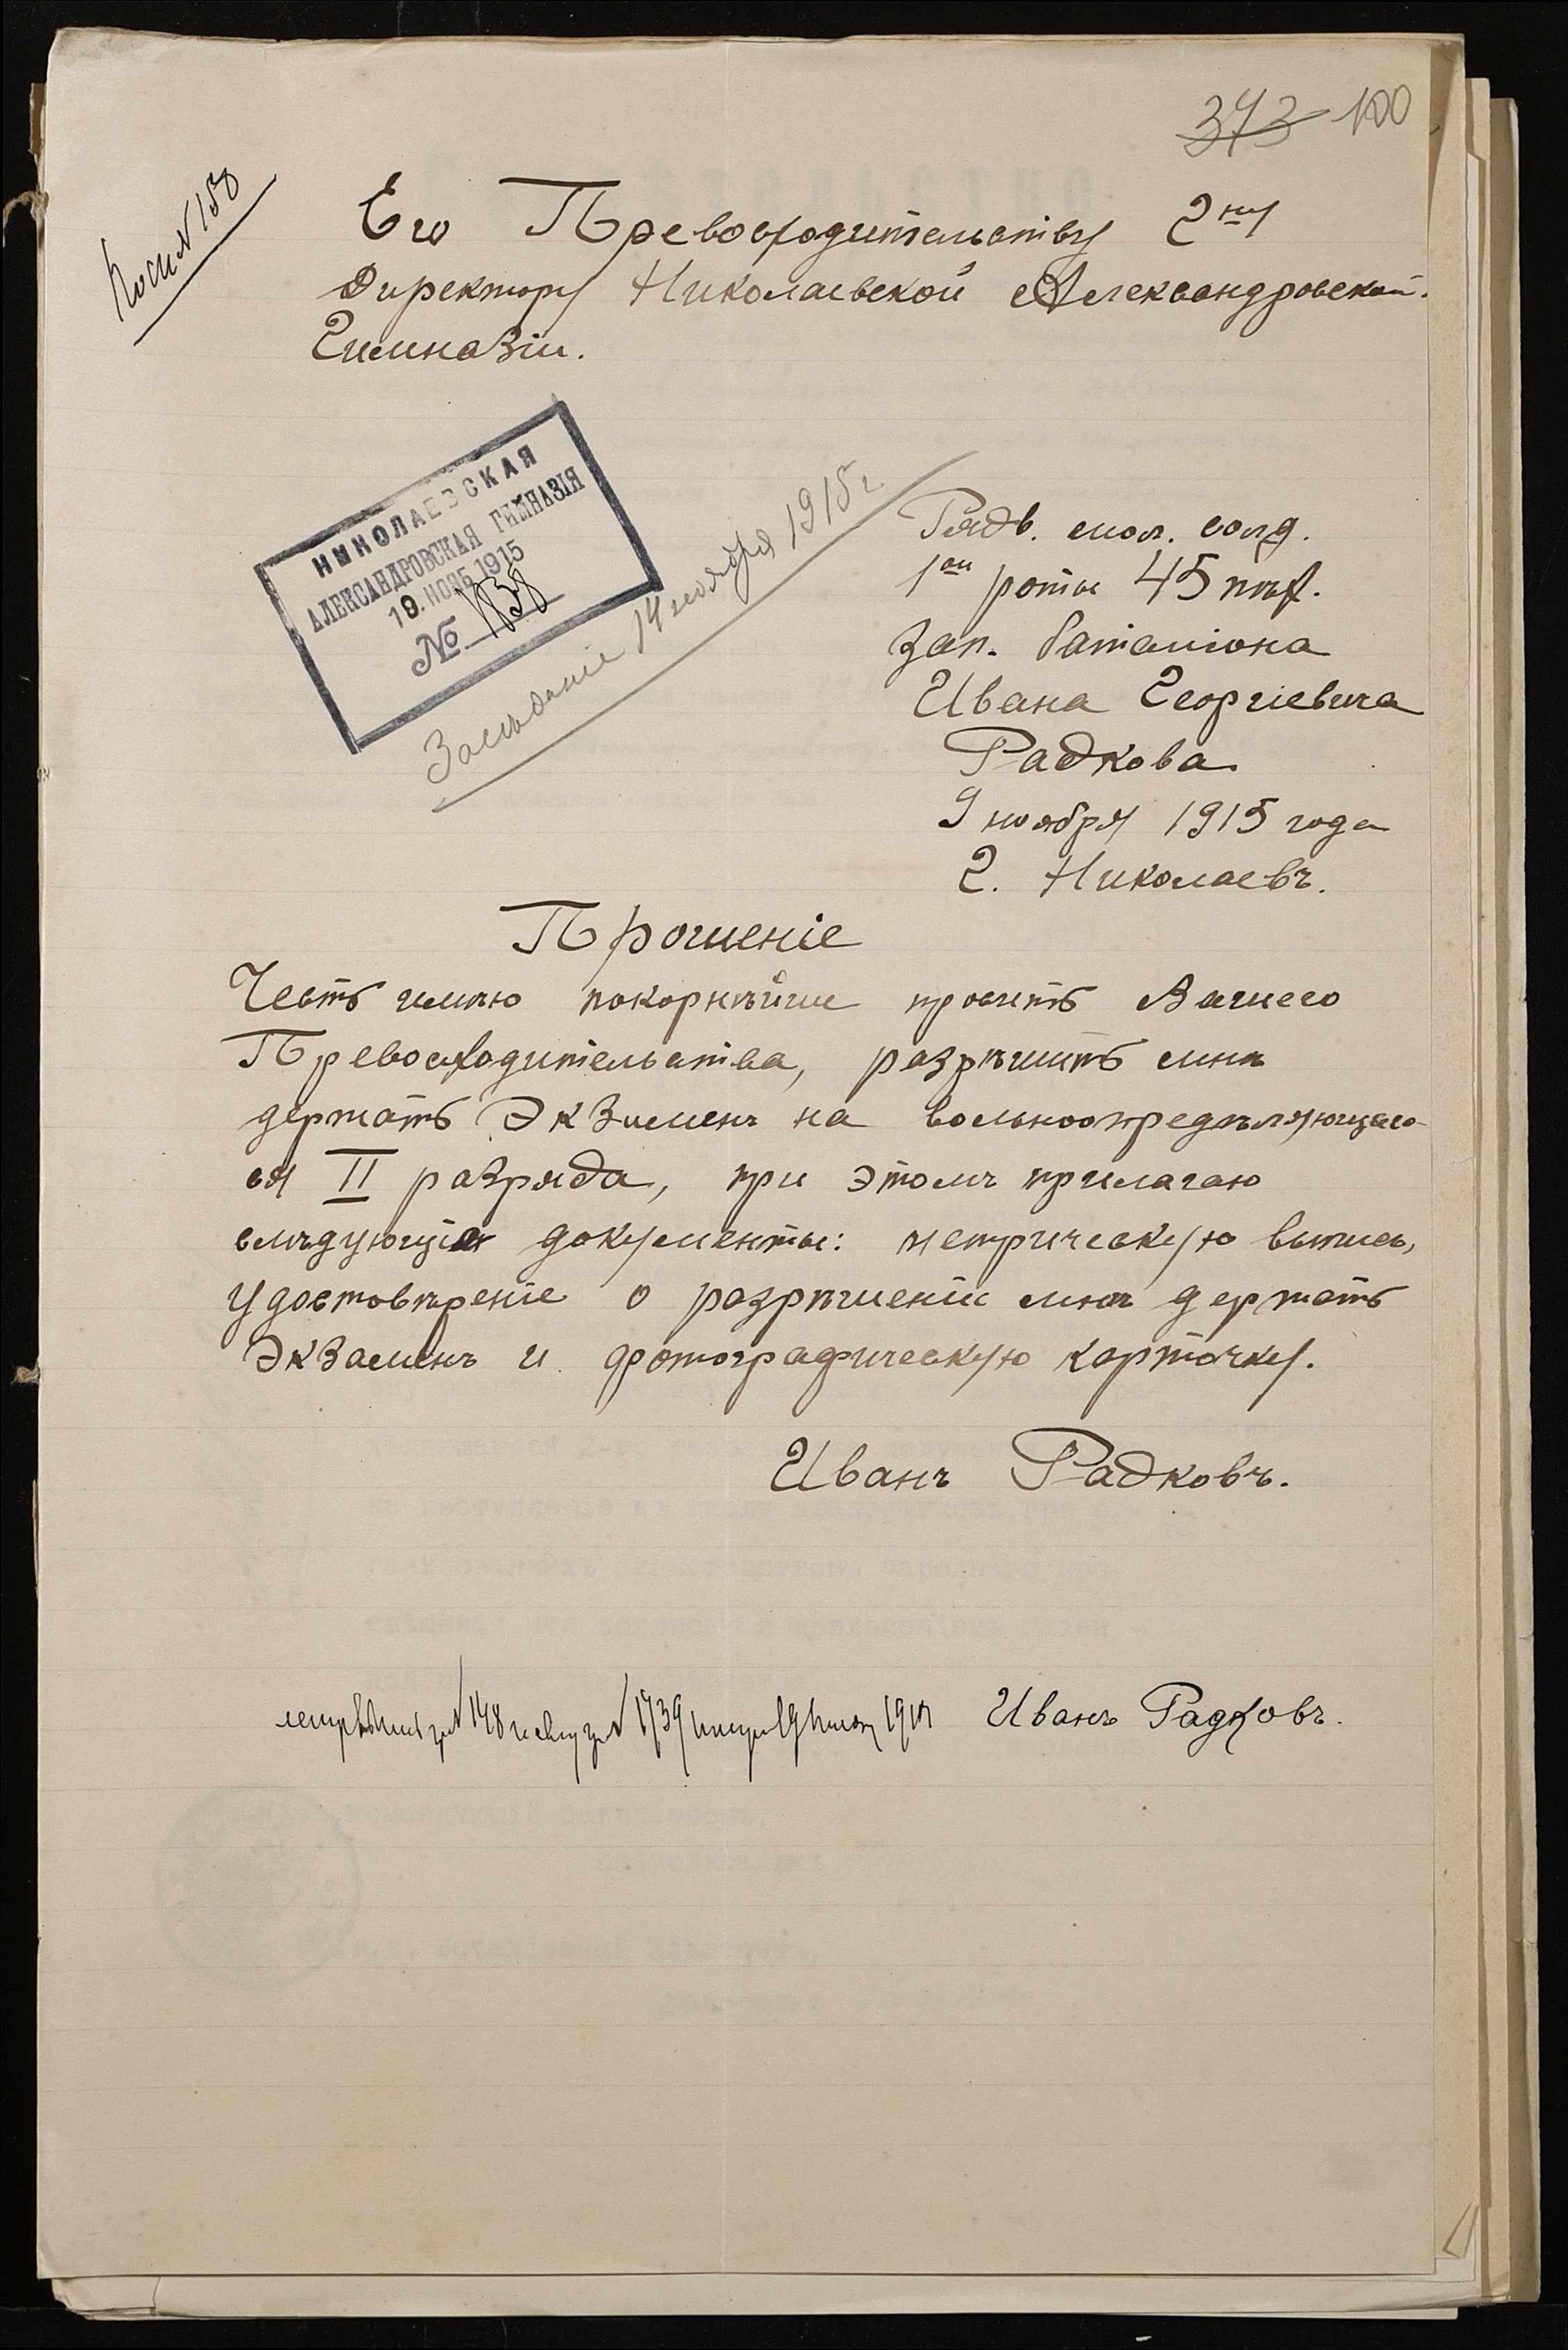 373 100
№ 158
Его Превосходительству Гну
Директору Николаевской Александровской
Гимназіи.
НИКОЛАЕВСКАЯ
АЛЕКСАНДРОВСКАЯ ГИМНАЗІЯ
19. НОЯБ 1915
№ 1838
Заседаніе 14 ноября 1915 г.
Рядв. мол. солд.
1ой роты 45 пѣх.
Зап. баталіона
Ивана Георгіевича
Радкова
9 ноября 1915 года
Г. Николаевъ.
Прошеніе
Честь имѣю покорнѣйше просить Вашего
Превосходительства, разрѣшить мнѣ
держать Экзаменъ на вольноопредѣляющаго-
ся II разряда, при этомъ прилагаю
слѣдующія документы: метрическую выпись,
Удостовѣреніе о разрѣшеніи мнѣ держать
Экзаменъ и фотографическую карточку.
Иванъ Радковъ.
за № 148 за № 1739 19 1915 Иванъ Радковъ.